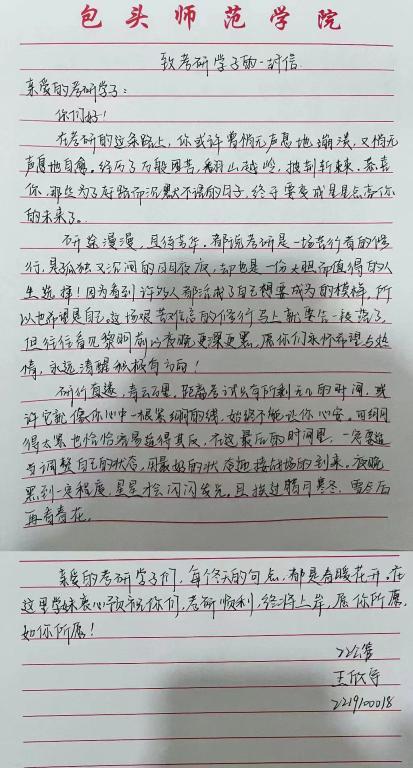 包头师范学院
致考研学子的一封信
亲爱的考研学子：
你们好！
在考研的这条路上，你或许曾悄无声息地崩溃，又悄无
声息地自愈。经历了万般困苦，翻山越岭，披荆斩棘。恭喜
你，那些为了好路而沉默不语的日子，终于要变成星星点亮你
的未来了。
研途漫漫，且待芳华。都说考研是一场苦行者的修
行，是孤独又沉闷的日日夜夜，却也是一份大胆而值得的人
生选择！因为看到许多人都活成了自己想要成为的模样，所
以也希望是自己。这场艰苦难言的修行马上就要告一段落了，
但往往看见黎明前的夜晚更深更黑，愿你们永怀希望与热
情，永远清醒积极有方向！
研行直遂，青云万里。距离考试只有所剩无几的时间，或
许它就像你心中一根紧绷的线，始终不能让你心安。可绷
得太累也恰恰容易适得其反，在这最后的时间里，一定要适
当调整自己的状态，用最好的状态迎接战场的到来。夜晚
黑到一定程度，星星才会闪闪发光。且挨过腊月寒冬，雪负后
再看春花。
亲爱的考研学子们，每个冬天的句点，都是春暖花开。在
这里学妹衷心预祝你们，考研顺利，终将上岸，愿你所愿，
如你所愿！
22公管
王欣宇
2219100018